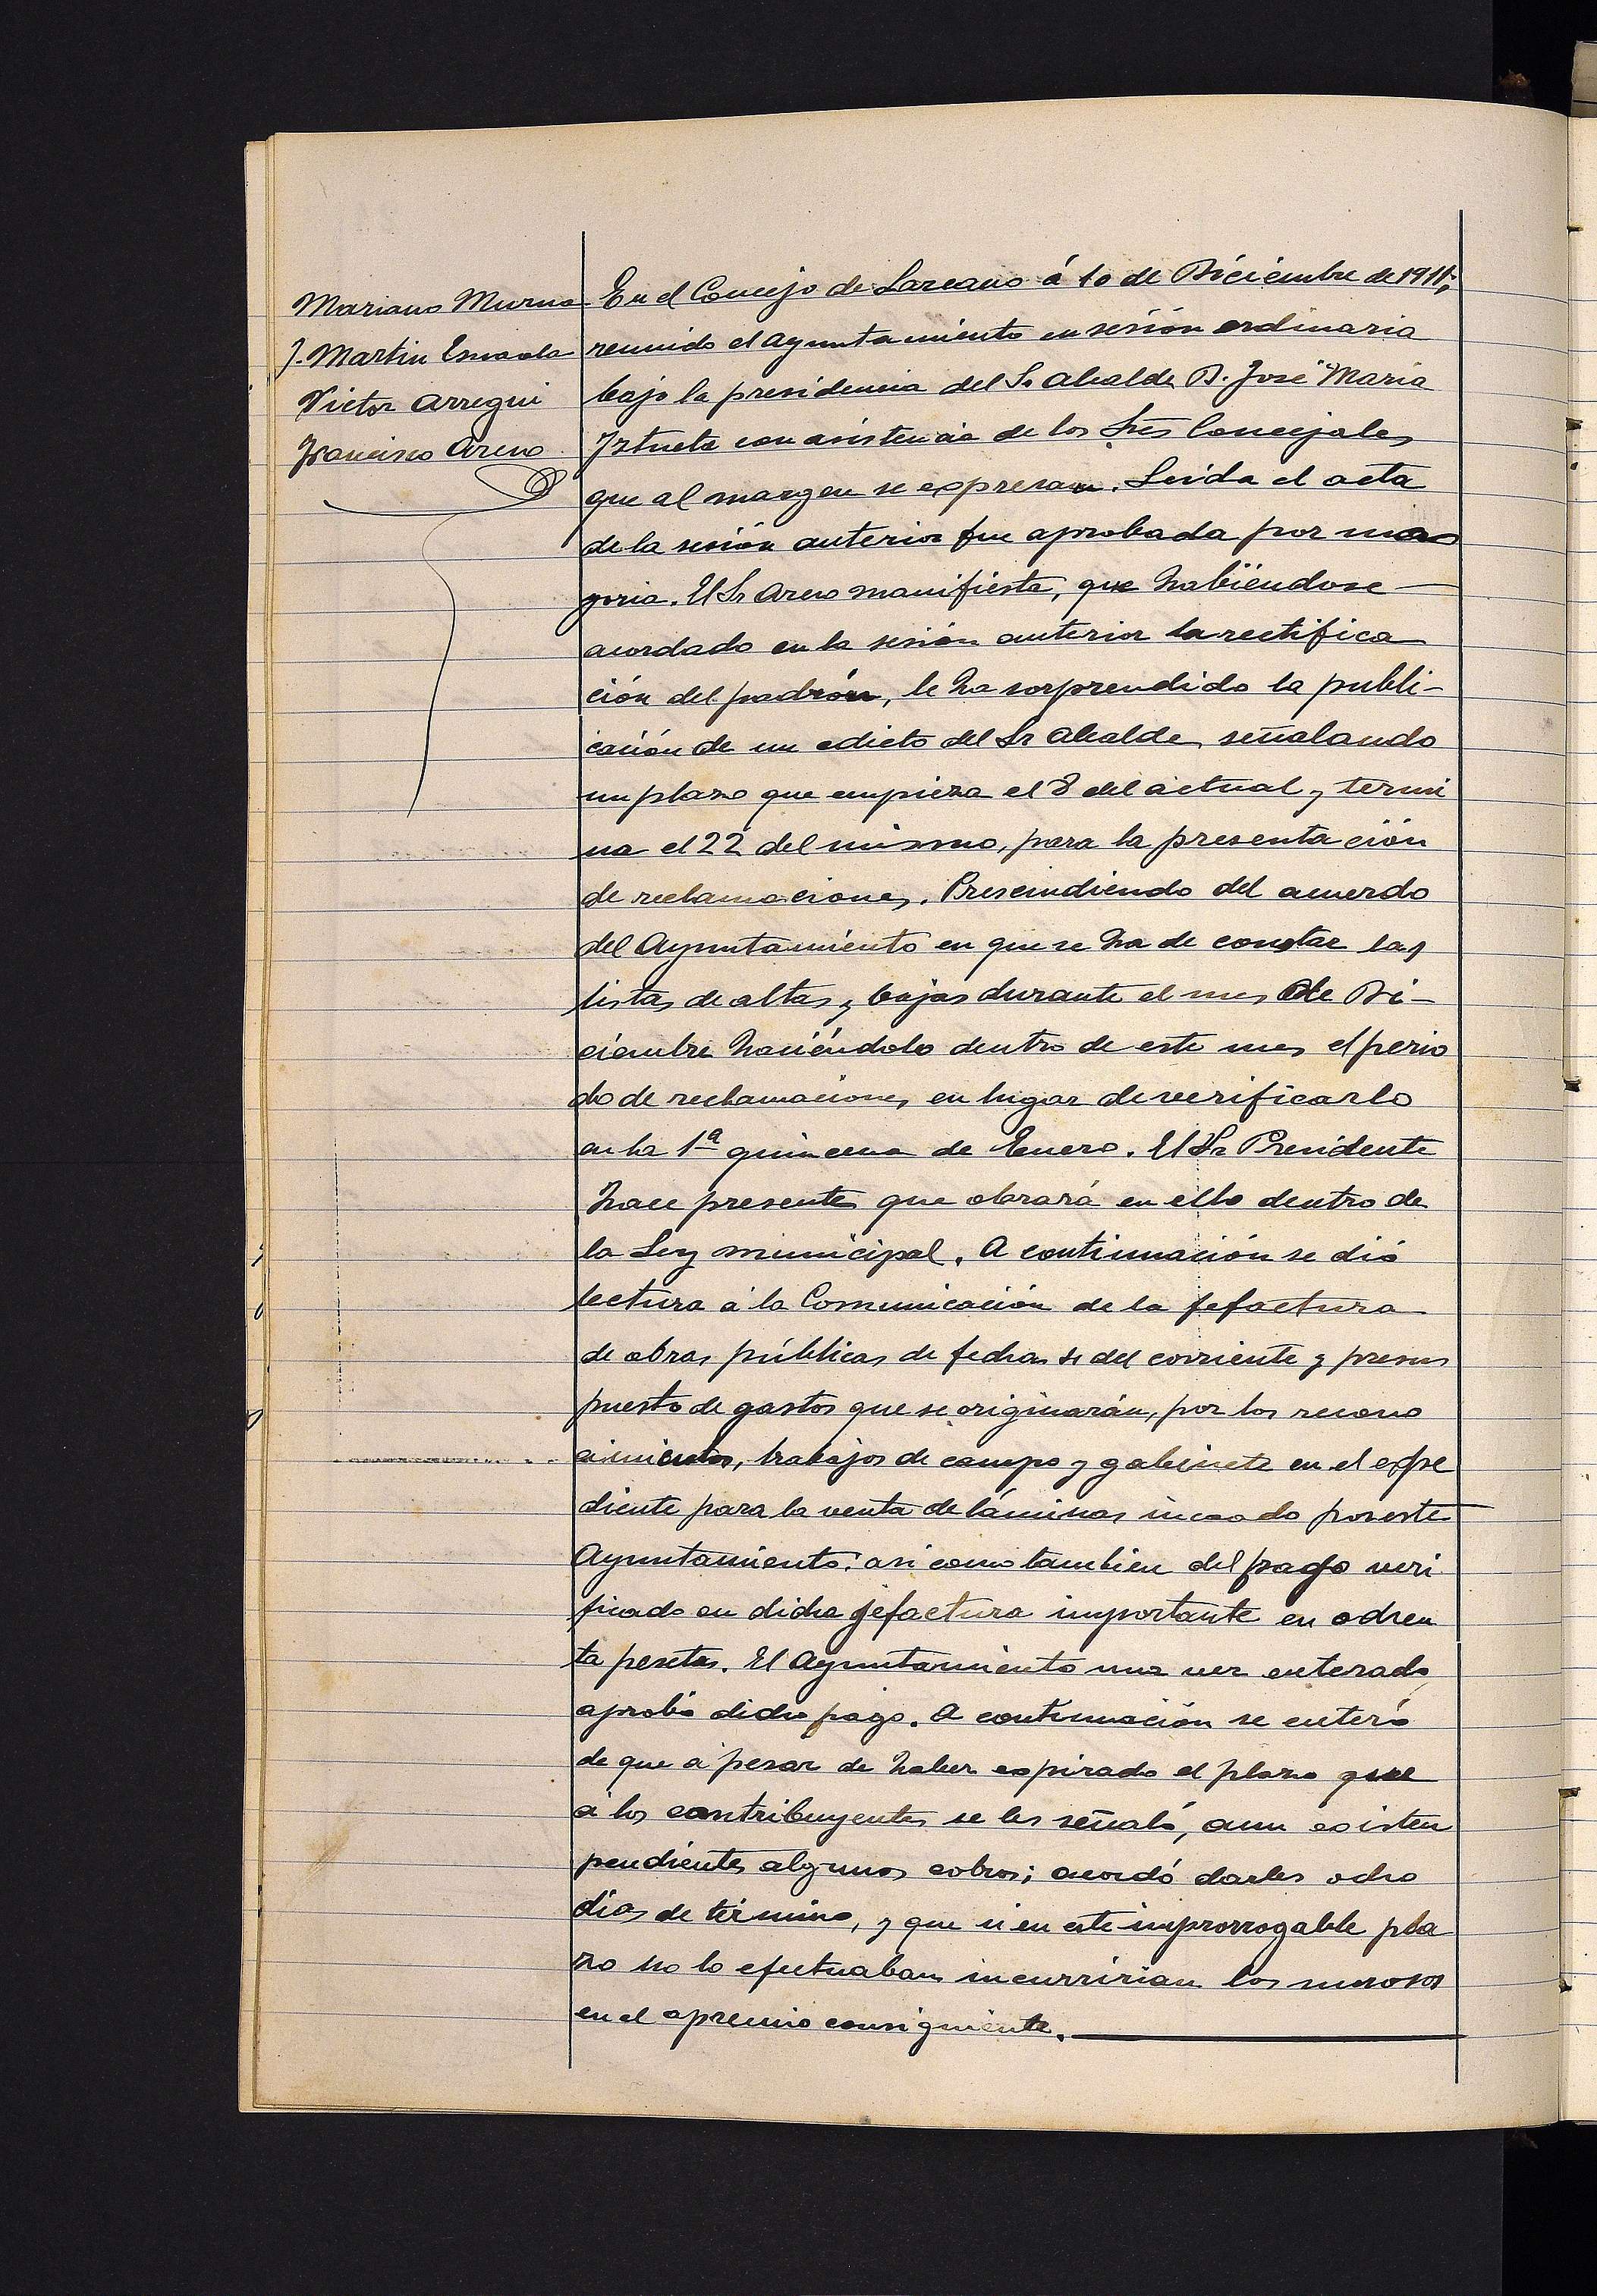 Mariano Murua
J. Martin Esnaola
Victor Arregui
Francisco Areno
En el Concejo de Lazcano á 10 de Diciembre de 1911,
reunido el Ayuntamiento en sesión ordinaria
bajo la presidencia del Sr Alcalde D. José Maria
Iztueta con asistencia de los Sres Concejales
que al margen se expresan. Leida el acta
de la sesión anterior fue aprobada por ma
yoria. El Sr Areno manifiesta, que habiéndose
acordado en la sesión anterior la rectifica
ción del padrón, le ha sorprendido la publi-
cación de un edicto del Sr Alcalde, señalando
un plazo que empieza el 8 del actual y termi
na el 22 del mismo, para la presentación
de reclamaciones. Prescindiendo del acuerdo
del Ayuntamiento en que se ha de constar las
listas de altas y bajas durante el mes de Di-
ciembre haciéndolo dentro de este mes el perio
do de reclamaciones, en lugar de verificarlo
en la 1ª quincena de Enero. El Sr Presidente
hace presente que obrará en ello dentro de
la Ley municipal. A continuación se dió
lectura á la Comunicación de la jefactura
de obras públicas de fecha del corriente y presu
puesto de gastos que se originarán, por los recono
cimientos, trabajos de campo y gabinete en el expe
diente para la venta de láminas incoado por este
Ayuntamiento: asi como tambien del pago veri
ficado en dicha jefactura importante en ochen
ta pesetas. El Ayuntamiento una vez enterado,
aprobó dicho pago. A continuación se enteró
de que á pesar de haber expirado el plazo que
á los contribuyentes se les señaló, aun existen
pendientes algunos cobros; acordó darles ocho
dias de término, y que si en este improrrogable pla
zo no lo efectuaban incurririan los morosos
en el apremio consiguiente.